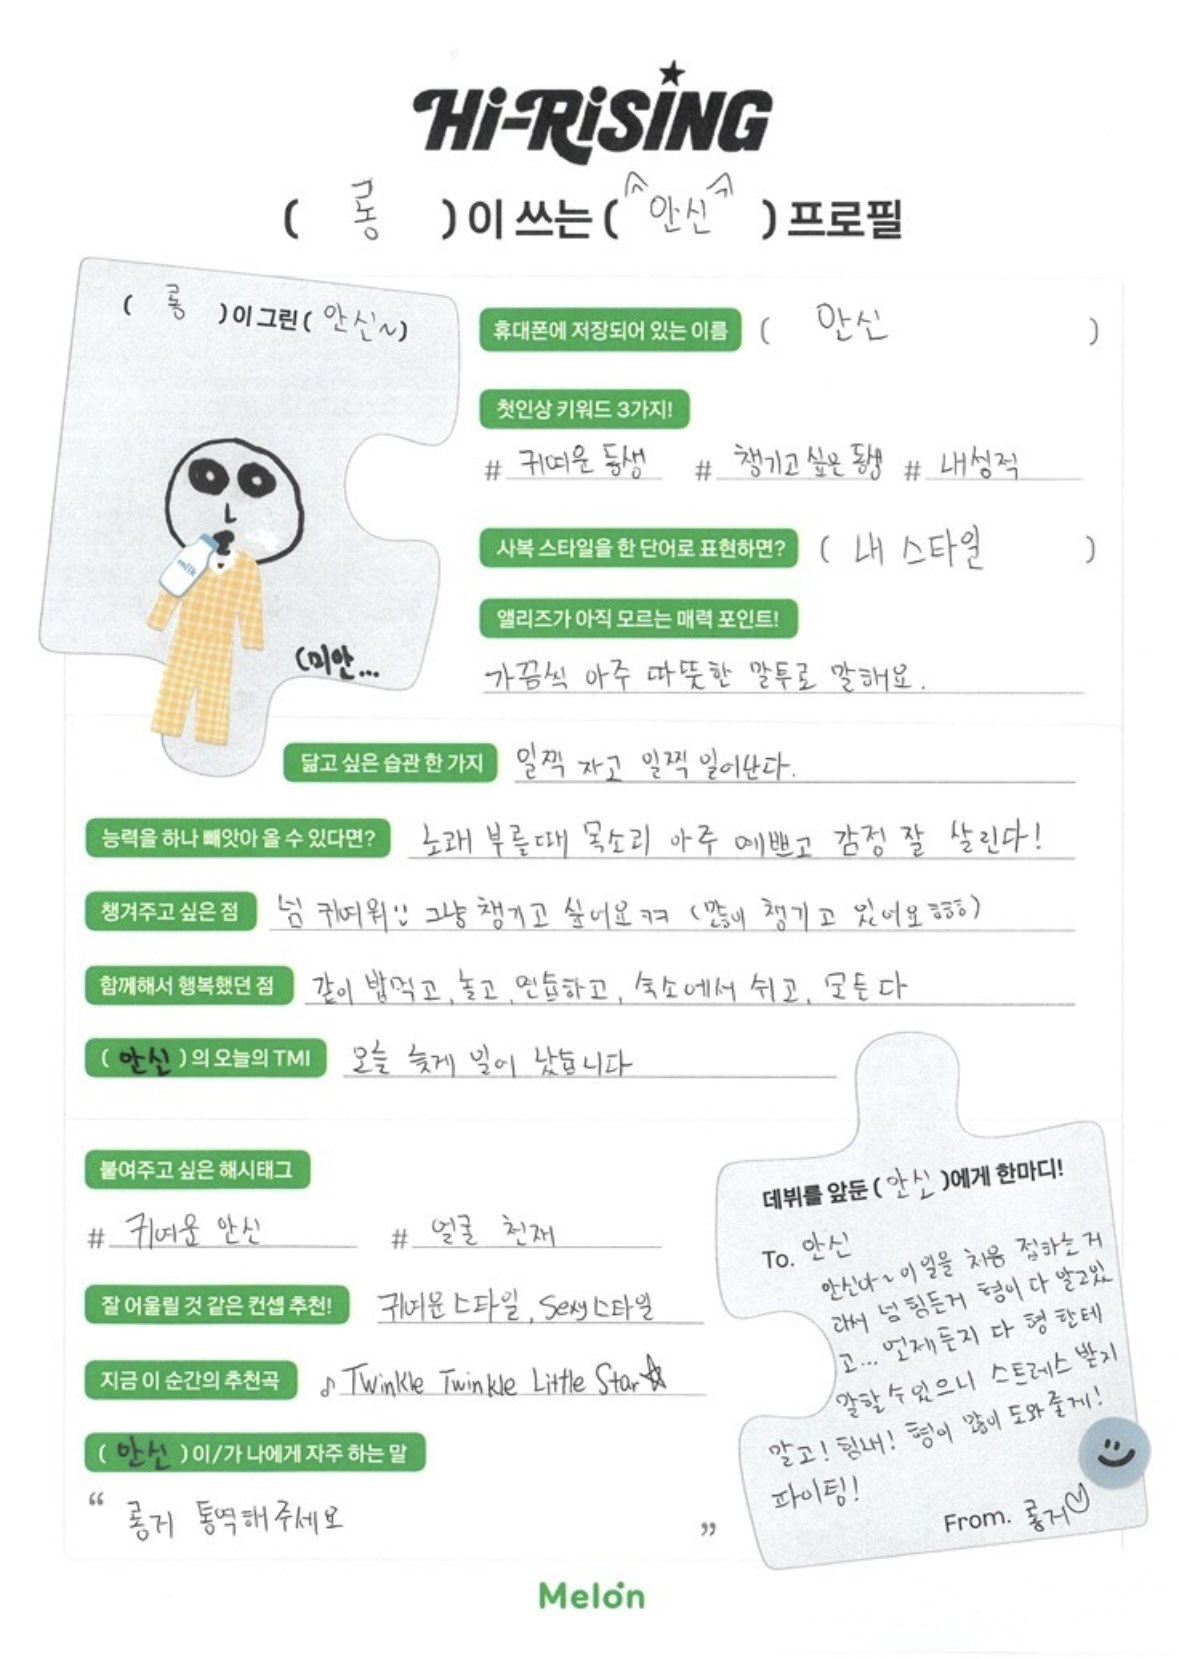 Hi-RiSiNG
( 롱 )이 쓰는 ( 안신 ) 프로필
( 롱 )이 그린 ( 안신~)
milk
(미안...
휴대폰에 저장되어 있는 이름 ( 안신 )
첫인상 키워드 3가지!
# 귀여운 동생 # 챙기고 싶은 동생 # 내성적
사복 스타일을 한 단어로 표현하면? ( 내 스타일 )
앨리즈가 아직 모르는 매력 포인트!
가끔씩 아주 따뜻한 말투로 말해요.
닮고 싶은 습관 한 가지 일찍 자고 일찍 일어난다.
능력을 하나 빼앗아 올 수 있다면? 노래 부를때 목소리 아주 예쁘고 감정 잘 살린다!
챙겨주고 싶은 점 넘 귀여워 그냥 챙기고 싶어요 ㅋㅋ (많이 챙기고 있어요 ㅎㅎㅎ)
함께해서 행복했던 점 같이 밥먹고, 놀고, 연습하고, 숙소에서 쉬고, 모든 다
( 안신 )의 오늘의 TMI 오늘 늦게 일어 났습니다
붙여주고 싶은 해시태그
# 귀여운 안신 # 얼굴 천재
잘 어울릴 것 같은 컨셉 추천! 귀여운 스타일, Sexy 스타일
지금 이 순간의 추천곡 ♪ Twinkle Twinkle Little Star ☆
( 안신 )이/가 나에게 자주 하는 말
“ 롱거 통역해 주세요 ”
데뷔를 앞둔 ( 안신 )에게 한마디!
To. 안신
안신아~ 이 일을 처음 접하는 거
라서 넘 힘든거 형이 다 알고있
고... 언제든지 다 형 한테
말할 수 있으니 스트레스 받지
말고! 힘내! 형이 많이 도와 줄게!
파이팅!
From. 롱거♡
Melon